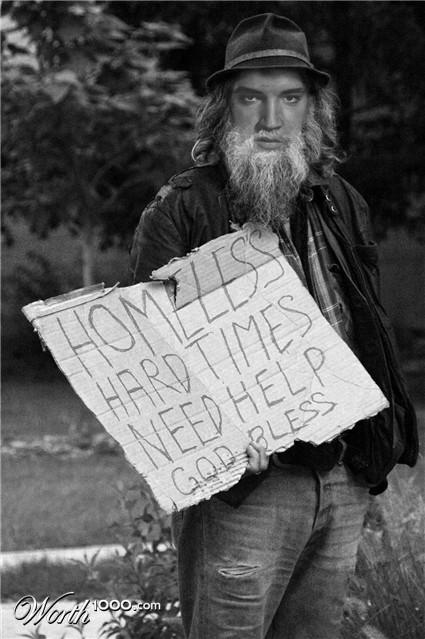 HOMELESS
HARD TIMES
NEED HELP
GOD BLESS
Worth1000.com